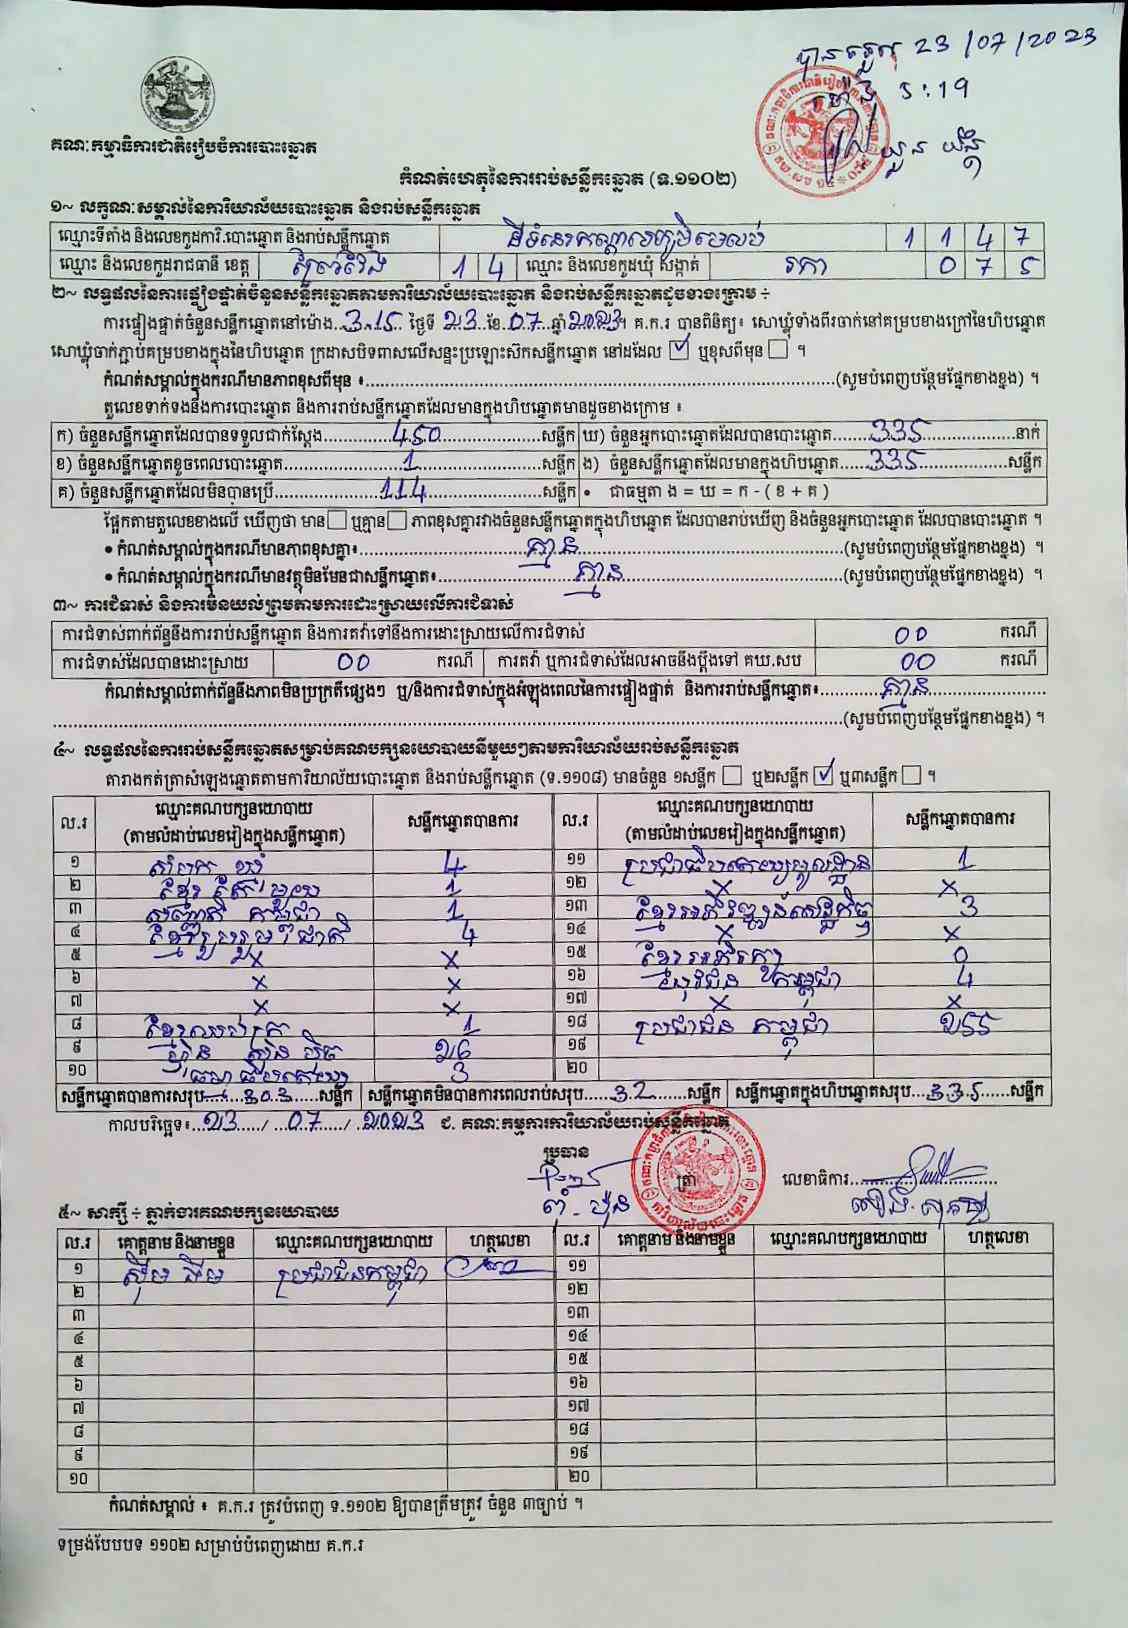 បានទទួល 23/07/2023
ម៉ោង 5:19
យួន យ៉ង
គណៈកម្មាធិការជាតិរៀបចំការបោះឆ្នោត
កំណត់ហេតុនៃការរាប់សន្លឹកឆ្នោត (ទ.១១០២)
១~ លក្ខណៈសម្គាល់នៃការិយាល័យបោះឆ្នោត និងរាប់សន្លឹកឆ្នោត
ឈ្មោះទីតាំង និងលេខកូដការិ.បោះឆ្នោត និងរាប់សន្លឹកឆ្នោត 1 1 4 7
ឈ្មោះ និងលេខកូដរាជធានី ខេត្ត ព្រៃវែង 1 4 ឈ្មោះ និងលេខកូដឃុំ សង្កាត់ រកា 0 7 5
២~ លទ្ធផលនៃការផ្ទៀងផ្ទាត់ចំនួនសន្លឹកឆ្នោតតាមការិយាល័យបោះឆ្នោត និងរាប់សន្លឹកឆ្នោតដូចខាងក្រោម ÷
ការផ្ទៀងផ្ទាត់ចំនួនសន្លឹកឆ្នោតនៅម៉ោង..3:15.. ថ្ងៃទី 23 ខែ.07...ឆ្នាំ 2023។ គ.ក.រ បានពិនិត្យ៖ សោឃ្លុំទាំងពីរចាក់នៅគម្របខាងក្រៅនៃហិបឆ្នោត
សោឃ្លុំចាក់ភ្ជាប់គម្របខាងក្នុងនៃហិបឆ្នោត ក្រដាសបិទពាសលើសន្ទះប្រឡោះស៊កសន្លឹកឆ្នោត នៅដដែល ☑ ឬខុសពីមុន ☐ ។
កំណត់សម្គាល់ក្នុងករណីមានភាពខុសពីមុន ៖..........(សូមបំពេញបន្ថែមផ្នែកខាងខ្នង) ។
តួលេខទាក់ទងនឹងការបោះឆ្នោត និងការរាប់សន្លឹកឆ្នោតដែលមានក្នុងហិបឆ្នោតមានដូចខាងក្រោម ៖
ក) ចំនួនសន្លឹកឆ្នោតដែលបានទទួលជាក់ស្តែង.....450.....សន្លឹក ឃ) ចំនួនអ្នកបោះឆ្នោតដែលបានបោះឆ្នោត.....335.....នាក់
ខ) ចំនួនសន្លឹកឆ្នោតខូចពេលបោះឆ្នោត.....1.....សន្លឹក ង) ចំនួនសន្លឹកឆ្នោតដែលមានក្នុងហិបឆ្នោត.....335.....សន្លឹក
គ) ចំនួនសន្លឹកឆ្នោតដែលមិនបានប្រើ.....114.....សន្លឹក • ជាធម្មតា ង = ឃ = ក - ( ខ + គ )
ផ្អែកតាមតួលេខខាងលើ ឃើញថា មាន ☐ ឬគ្មាន ☐ ភាពខុសគ្នារវាងចំនួនសន្លឹកឆ្នោតក្នុងហិបឆ្នោត ដែលបានរាប់ឃើញ និងចំនួនអ្នកបោះឆ្នោត ដែលបានបោះឆ្នោត ។
• កំណត់សម្គាល់ក្នុងករណីមានភាពខុសគ្នា៖.....គ្មាន.....(សូមបំពេញបន្ថែមផ្នែកខាងខ្នង) ។
• កំណត់សម្គាល់ក្នុងករណីមានវត្ថុមិនមែនជាសន្លឹកឆ្នោត៖.....គ្មាន.....(សូមបំពេញបន្ថែមផ្នែកខាងខ្នង) ។
៣~ ការជំទាស់ និងការមិនយល់ព្រមតាមការដោះស្រាយលើការជំទាស់
ការជំទាស់ពាក់ព័ន្ធនឹងការរាប់សន្លឹកឆ្នោត និងការតវ៉ាទៅនឹងការដោះស្រាយលើការជំទាស់ 00 ករណី
ការជំទាស់ដែលបានដោះស្រាយ 00 ករណី ការតវ៉ា ឬការជំទាស់ដែលអាចនឹងប្តឹងទៅ គឃ.សប 00 ករណី
កំណត់សម្គាល់ពាក់ព័ន្ធនឹងភាពមិនប្រក្រតីផ្សេងៗ ឬ/និងការជំទាស់ក្នុងអំឡុងពេលនៃការផ្ទៀងផ្ទាត់ និងការរាប់សន្លឹកឆ្នោត៖.....គ្មាន.....
..........(សូមបំពេញបន្ថែមផ្នែកខាងខ្នង) ។
៤~ លទ្ធផលនៃការរាប់សន្លឹកឆ្នោតសម្រាប់គណបក្សនយោបាយនីមួយៗតាមការិយាល័យរាប់សន្លឹកឆ្នោត
តារាងកត់ត្រាសំឡេងឆ្នោតតាមការិយាល័យបោះឆ្នោត និងរាប់សន្លឹកឆ្នោត (ទ.១១០៨) មានចំនួន ១សន្លឹក ☐ ឬ២សន្លឹក ☑ ឬ៣សន្លឹក ☐ ។
ល.រ ឈ្មោះគណបក្សនយោបាយ (តាមលំដាប់លេខរៀងក្នុងសន្លឹកឆ្នោត) សន្លឹកឆ្នោតបានការ ល.រ ឈ្មោះគណបក្សនយោបាយ (តាមលំដាប់លេខរៀងក្នុងសន្លឹកឆ្នោត) សន្លឹកឆ្នោតបានការ
១ 4 ១១ ប្រជាធិបតេយ្យមូលដ្ឋាន 1
២ ខ្មែរតែមួយ 1 ១២ × ×
៣ សញ្ជាតិកម្ពុជា 1 ១៣ ខ្មែរអភិវឌ្ឍន៍សេដ្ឋកិច្ច 3
៤ ខ្មែររួបរួមជាតិ 4 ១៤ × ×
៥ × × ១៥ ខ្មែរអភិរក្ស 0
៦ × × ១៦ យុវជនកម្ពុជា 4
៧ × × ១៧ × ×
៨ 1 ១៨ ប្រជាជនកម្ពុជា 255
៩ ហ៊្វុនស៊ិនប៉ិច 26 ១៩
១០ ធម្មាធិបតេយ្យ 3 ២០
សន្លឹកឆ្នោតបានការសរុប....303....សន្លឹក សន្លឹកឆ្នោតមិនបានការពេលរាប់សរុប.....32.....សន្លឹក សន្លឹកឆ្នោតក្នុងហិបឆ្នោតសរុប...335....សន្លឹក
កាលបរិច្ឆេទ៖...23..../...07..../..2023 ជ. គណៈកម្មការការិយាល័យរាប់សន្លឹកឆ្នោត
ប្រធាន ត្រា លេខាធិការ..........
៥~ សាក្សី ÷ ភ្នាក់ងារគណបក្សនយោបាយ
ល.រ គោត្តនាម និងនាមខ្លួន ឈ្មោះគណបក្សនយោបាយ ហត្ថលេខា ល.រ គោត្តនាម និងនាមខ្លួន ឈ្មោះគណបក្សនយោបាយ ហត្ថលេខា
១ ស៊ឹម ធីម ប្រជាជនកម្ពុជា ១១
២ ១២
៣ ១៣
៤ ១៤
៥ ១៥
៦ ១៦
៧ ១៧
៨ ១៨
៩ ១៩
១០ ២០
កំណត់សម្គាល់ ៖ គ.ក.រ ត្រូវបំពេញ ទ.១១០២ ឱ្យបានត្រឹមត្រូវ ចំនួន ៣ច្បាប់ ។
ទម្រង់បែបបទ ១១០២ សម្រាប់បំពេញដោយ គ.ក.រ